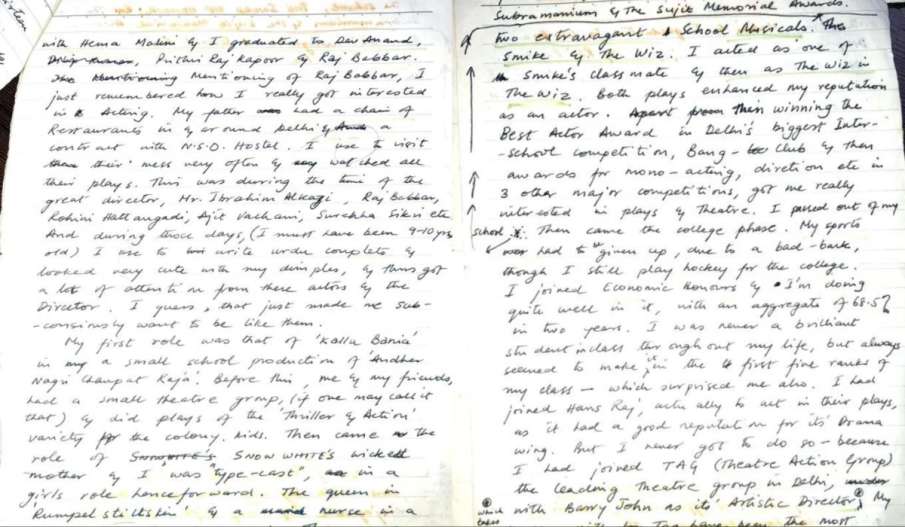 with Hema Malini & I graduated to Dev Anand,
Prithvi Raj Kapoor & Raj Babbar.
Mentioning of Raj Babbar, I
just remembered how I really got interested
in Acting. My father had a chain of
Restaurants in & around Delhi & a
contract with N.S.D. Hostel. I use to visit
their mess very often & watched all
their plays. This was durring the time of the
great director, Mr. Ibrahim Alkazi, Raj Babbar,
Rohini Hattangadi, Ajit Vachani, Surekha Sikri etc.
And during those days, (I must have been 9-10 yrs
old) I use to write urdu complete &
looked very cute with my dimples, & thus got
a lot of attention from these actors & the
Director. I guess, that just made me sub-
-consiously want to be like them.
My first role was that of 'Kallu Bania'
in a small school production of 'Andher
Nagri Chaupat Raja'. Before this, me & my friends,
had a small theatre group, (if one may call it
that) & did plays of the 'Thriller & Action'
variety for the colony kids. Then came the
role of SNOW WHITE'S wicked
mother & I was "type-cast", in a
girls role hence forward. The queen in
'Rumpelstiltskin' & a nurse in a
Subramanium & The Sujit Memorial Awards.
two extravagant School Musicals.
Smike & The Wiz. I acted as one of
Smike's classmate & then as The Wiz in
The Wiz. Both plays enhanced my reputation
as an actor. Apart from then winning the
Best Actor Award in Delhi's biggest Inter-
-school competition, Bang-Club & then
awards for mono-acting, direction etc in
3 other major competitions, got me really
interested in plays & Theatre. I passed out of my
school. Then came the college phase. My sports
had to be given up, due to a bad-back,
though I still play hockey for the college.
I joined Economic Honours & I'm doing
quite well in it, with an aggregate of 68.5%
in two years. I was never a brilliant
student in class through out my life, but always
seemed to make it in the first five ranks of
my class – which surprised me also. I had
joined Hans Raj, actually to act in their plays,
as it had a good reputation for its' Drama
wing. But I never got to do so – because
I had joined TAG (Theatre Action Group)
the leading Theatre group in Delhi,
with Barry John as its' Artistic Director, My
which
takes
have been the most